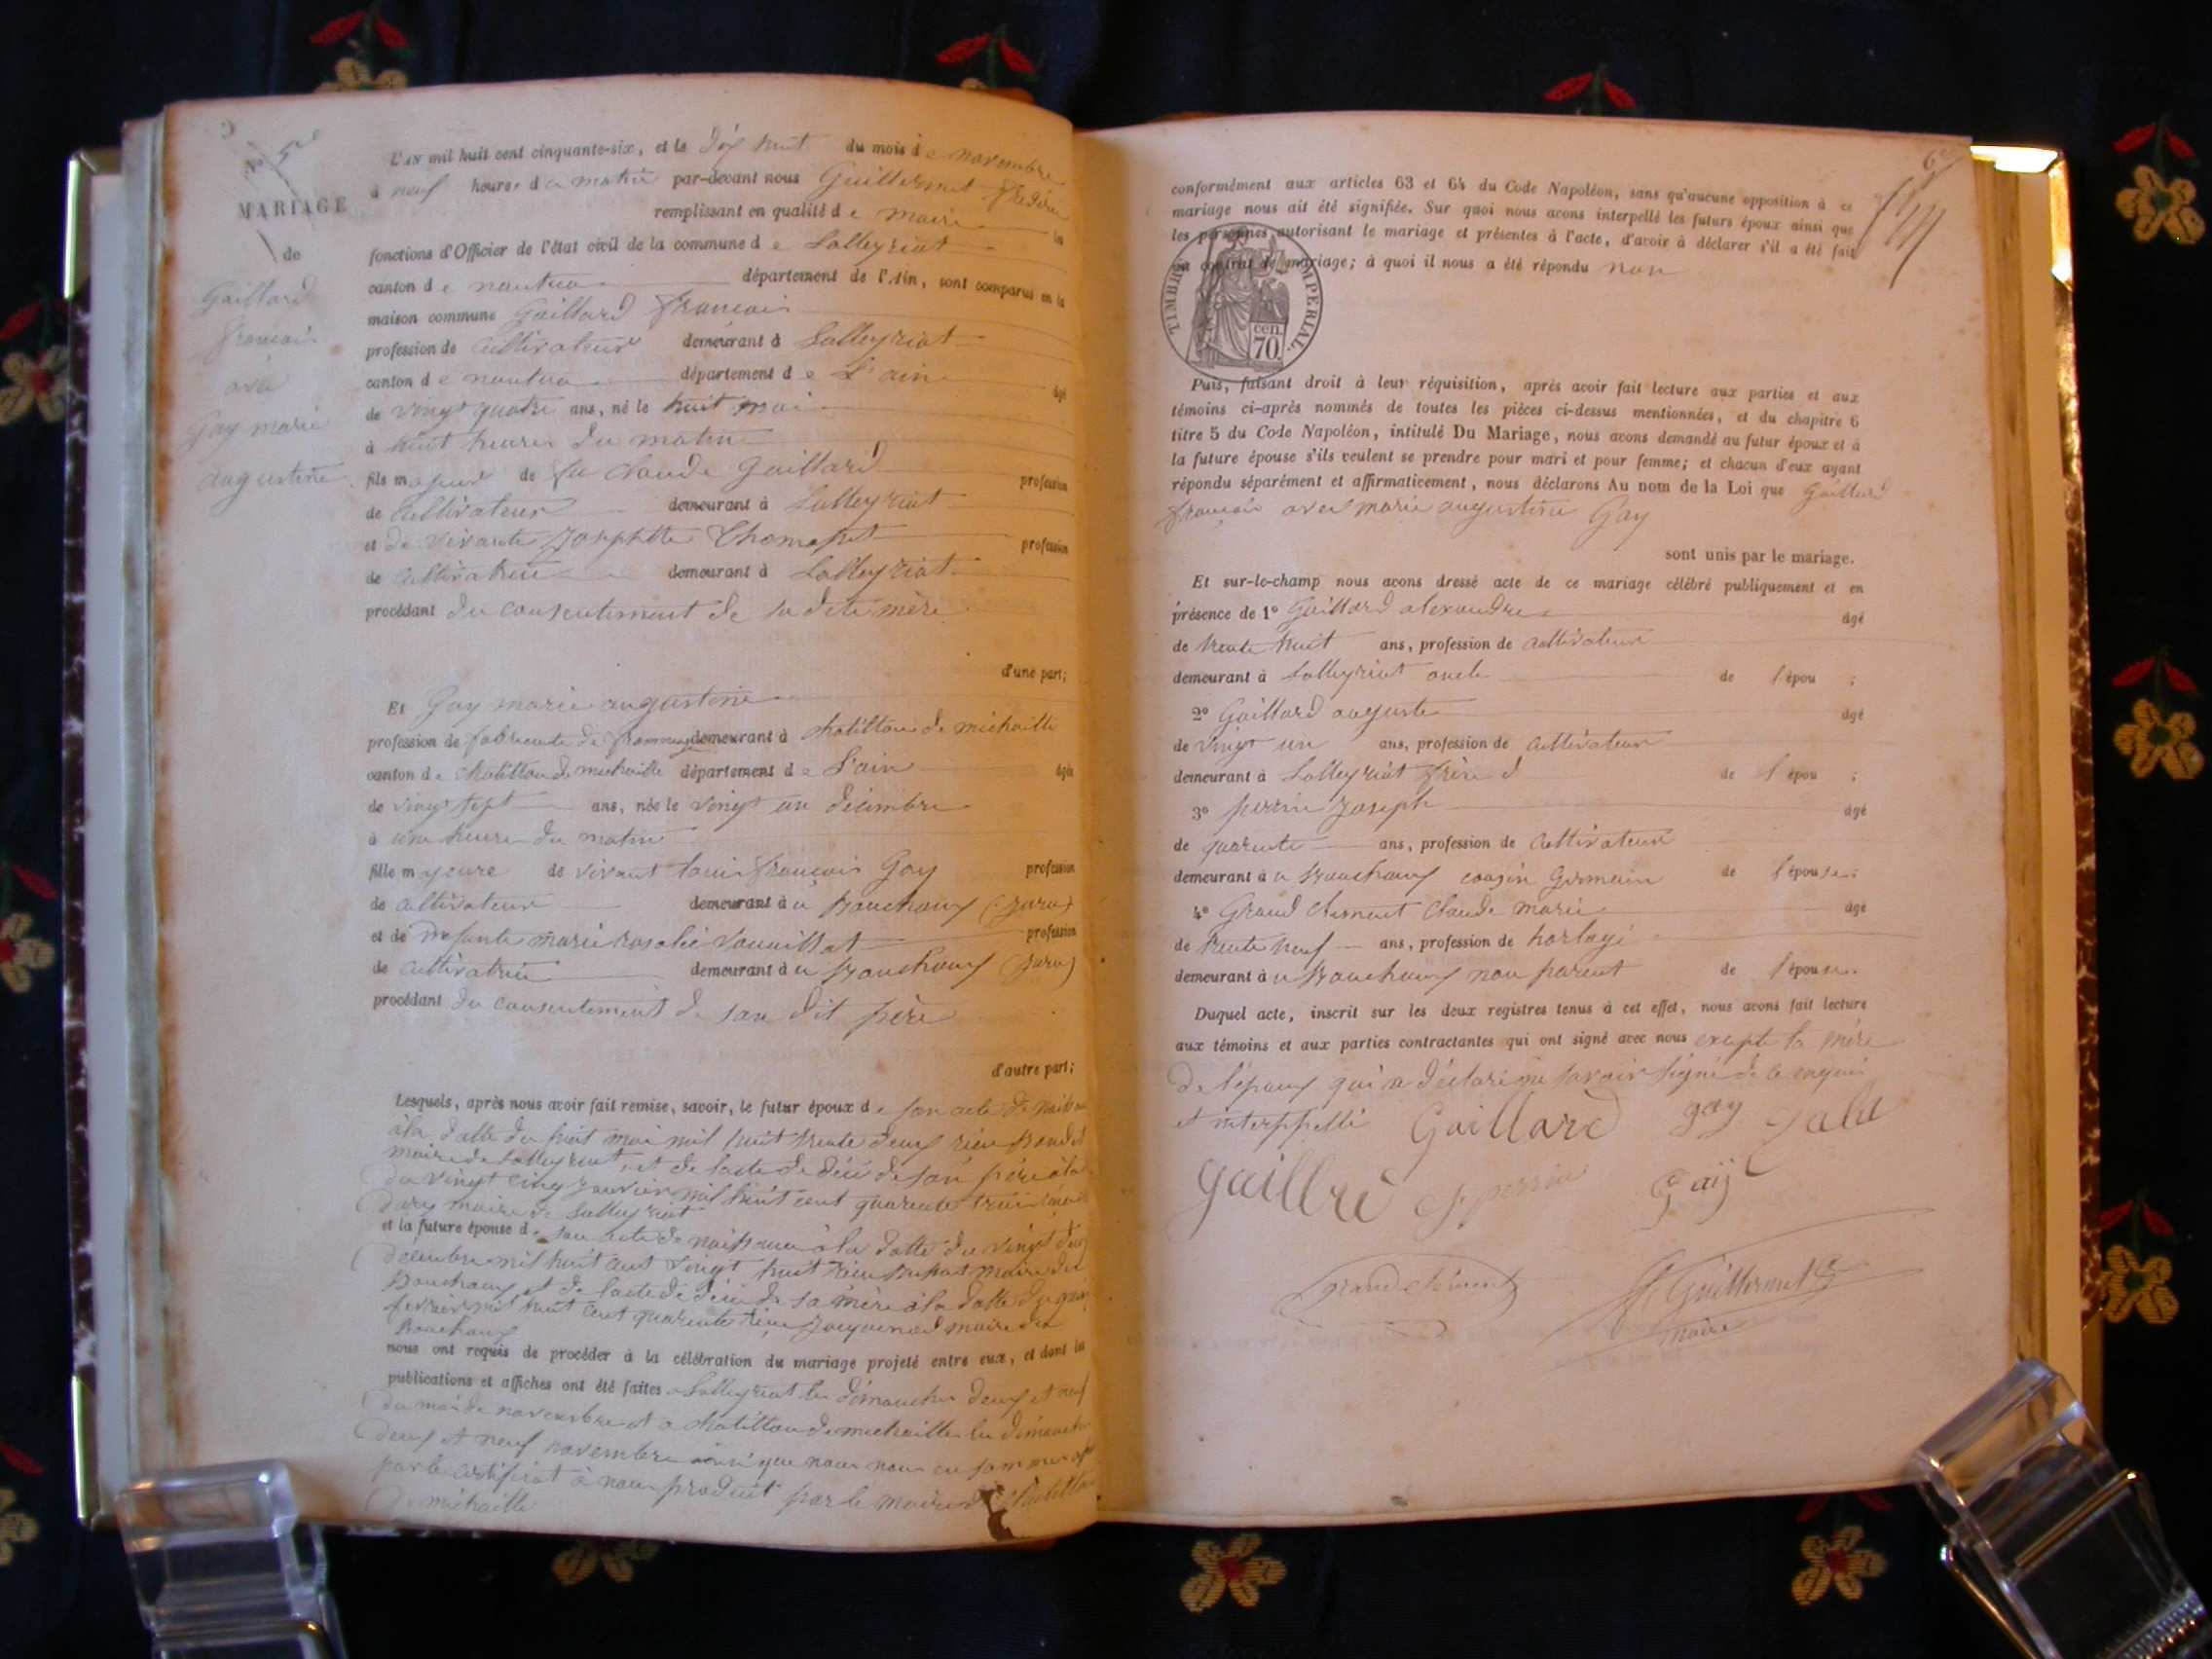 No 5
MARIAGE
de
Gaillard
francois
avec
Gay marie
augustine
L'AN mil huit cent cinquante-six, et le dix huit du mois de novembre
à neuf heures du matin par-devant nous Guillermet
remplissant en qualité de maire les
fonctions d'Officier de l'état civil de la commune de Lalleyriat
canton de nantua département de l'Ain, sont comparus en la
maison commune Gaillard francois
profession de cultivateur demeurant à Lalleyriat
canton de nantua département de L'ain âgé
de vingt quatre ans, né le huit mai
à huit heures du matin
fils majeur de feu claude Gaillard profession
de cultivateur demeurant à Lalleyriat
et de vivante Josephtte Thomasset profession
de cultivatrice demeurant à Lalleyriat
procédant du consentement de sa dite mère
d'une part;
Et Gay marie augustine
profession de fabricante de demeurant à chatillon de michaille
canton de chatillon de michaille département de L'ain âgée
de vingt sept ans, née le vingt un décembre
à une heure du matin
fille majeure de vivant louis francois Gay profession
de cultivateur demeurant à a Bouchoux (jura)
et de défunte marie rosalie profession
de cultivatrice demeurant à a Bouchoux (jura)
procédant du consentement de son dit père
d'autre part;
Lesquels, après nous avoir fait remise, savoir, le futur époux de son acte de
à la datte du huit mai mil huit trente deux
maire de Lalleyriat, et de lacte de décé de son père à la
du vingt cinq janvier mil huit cent quarante trois
maire de Lalleyriat
et la future épouse de son acte de naissance à la datte du vingt deux
décembre mil huit cent vingt huit maire des
Bouchoux et de lacte de décé de sa mère à la datte du
fevrier mil huit cent quarante maire des
Bouchoux
nous ont requis de procéder à la célébration du mariage projeté entre eux, et dont les
publications et affiches ont été faites a Lalleyriat les dimanches deux et neuf
du mois de novembre et a chatillon de michaille les dimanches
deux et neuf novembre ainsi que nous nous en sommes
par le certificat à nous produit par le maire de chatillon
de michaille
conformément aux articles 63 et 64 du Code Napoléon, sans qu'aucune opposition à ce
mariage nous ait été signifiée. Sur quoi nous avons interpellé les futurs époux ainsi que
les personnes autorisant le mariage et présentes à l'acte, d'avoir à déclarer s'il a été fait
un contrat de mariage; à quoi il nous a été répondu non
TIMBRE IMPERIAL.
cen.
70.
Puis, faisant droit à leur réquisition, après avoir fait lecture aux parties et aux
témoins ci-après nommés de toutes les pièces ci-dessus mentionnées, et du chapitre 6
titre 5 du Code Napoléon, intitulé Du Mariage, nous avons demandé au futur époux et à
la future épouse s'ils veulent se prendre pour mari et pour femme; et chacun d'eux ayant
répondu séparément et affirmativement, nous déclarons Au nom de la Loi que Gaillard
françois avec marie augustine Gay
sont unis par le mariage.
Et sur-le-champ nous avons dressé acte de ce mariage célébré publiquement et en
présence de 1° Gaillard alexandre âgé
de trente huit ans, profession de cultivateur
demeurant à Lalleyriat oncle de l'épou ;
2° Gaillard auguste âgé
de vingt un ans, profession de cultivateur
demeurant à Lalleyriat frère d de l'épou ;
3° perrin Joseph âgé
de quarente ans, profession de cultivateur
demeurant à a Bouchoux cousin germain de l'épouse;
4° Grand clement claude marie âgé
de trente neuf ans, profession de
demeurant à a Bouchoux non parent de l'épouse.
Duquel acte, inscrit sur les deux registres tenus à cet effet, nous avons fait lecture
aux témoins et aux parties contractantes qui ont signé avec nous la mère
de l'époux qui a déclaré ne savoir signé de ce enquis
et interppellé Gaillard gay
perrin Gaÿ
grand clément Guillermet
maire